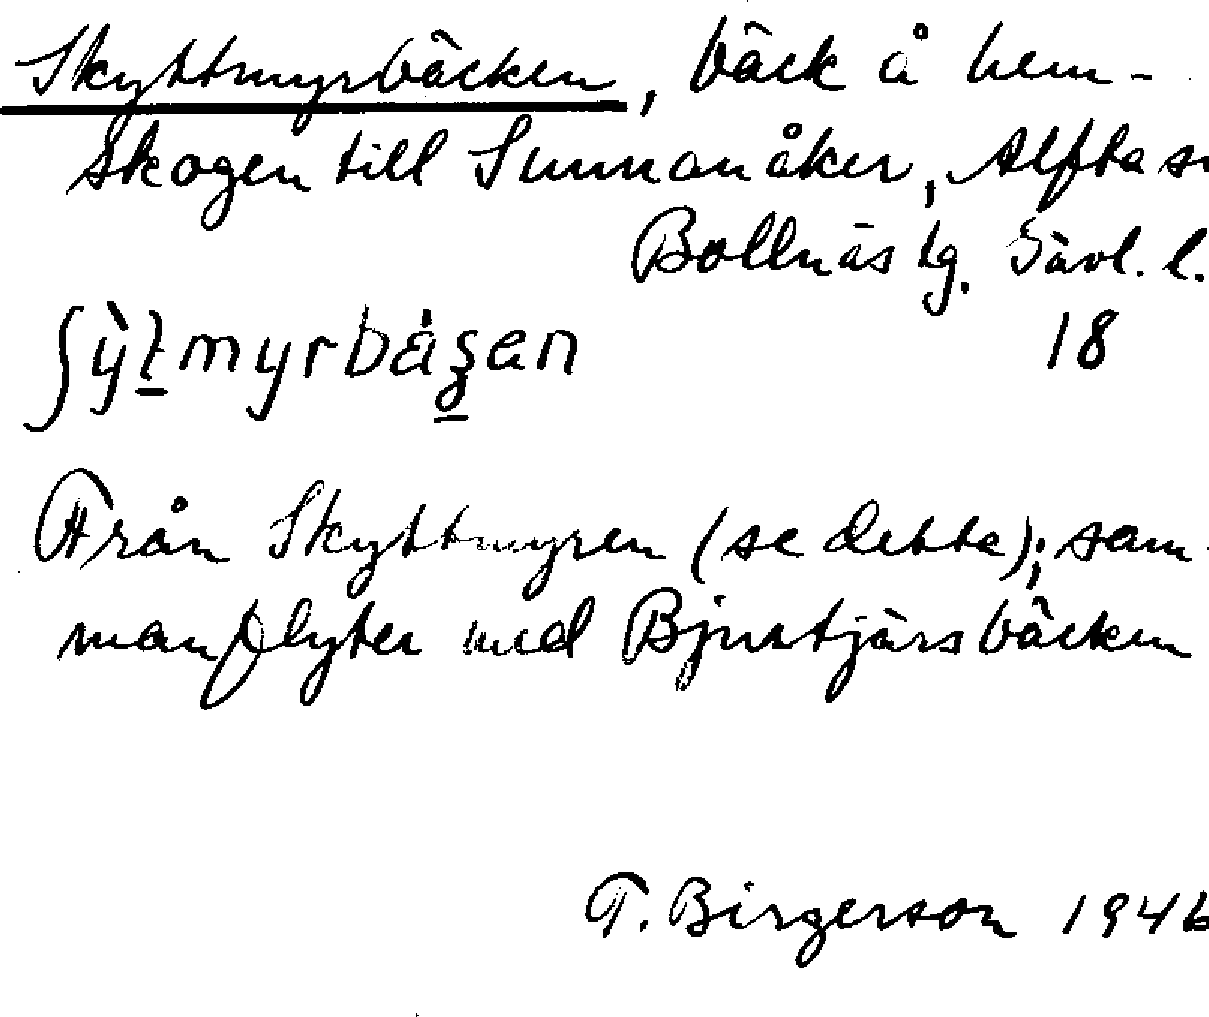 Skyttmyrbäcken, bäck å hem-
skogen till Sunnanåker, Alfta sn
Bollnäs tg. Gävl. l.
18
Från Skyttmyren (se detta); sam-
manflyter med Bjurtjärsbäcken
T. Birgerson 1946